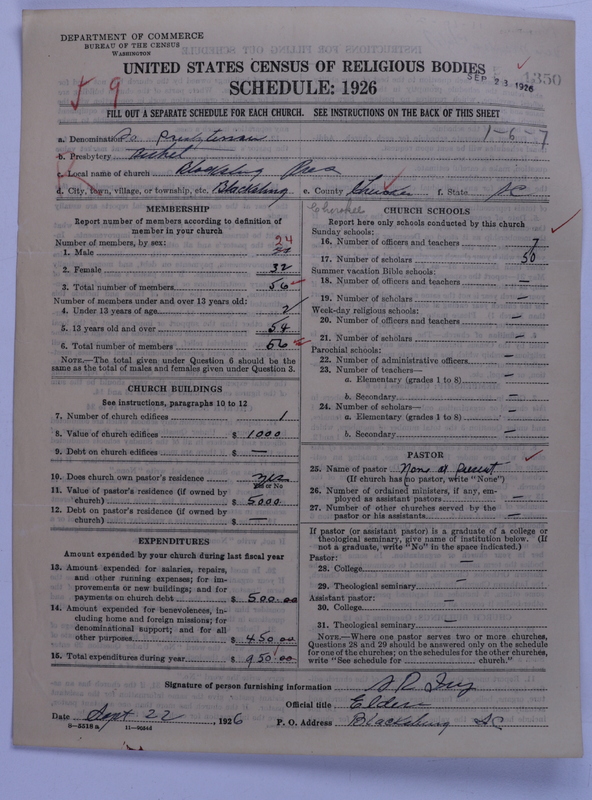 DEPARTMENT OF COMMERCE
BUREAU OF THE CENSUS
WASHINGTON
UNITED STATES CENSUS OF RELIGIOUS BODIES
SEP 23 1926
1350
SCHEDULE: 1926
9
FILL OUT A SEPARATE SCHEDULE FOR EACH CHURCH. SEE INSTRUCTIONS ON THE BACK OF THIS SHEET
1-6-7
a. Denomination So Presbyterian
b. Presbytery Bethel
c. Local name of church Blacksburg Pres
d. City, town, village, or township, etc. Blacksburg e. County Cherokee f. State SC
Cherokee
MEMBERSHIP
Report number of members according to definition of
member in your church
Number of members, by sex:
24
1. Male
2. Female 32
3. Total number of members 56
Number of members under and over 13 years old:
4. Under 13 years of age 2
5. 13 years old and over 54
6. Total number of members 56
NOTE.—The total given under Question 6 should be the
same as the total of males and females given under Question 3.
CHURCH BUILDINGS
See instructions, paragraphs 10 to 12
7. Number of church edifices 1
8. Value of church edifices $ 1000
9. Debt on church edifices $ —
10. Does church own pastor's residence yes
Yes or No
11. Value of pastor's residence (if owned by
church) $ 5000
12. Debt on pastor's residence (if owned by
church) $ —
EXPENDITURES
Amount expended by your church during last fiscal year
13. Amount expended for salaries, repairs,
and other running expenses; for im-
provements or new buildings; and for
payments on church debt $ 500.00
14. Amount expended for benevolences, in-
cluding home and foreign missions; for
denominational support; and for all
other purposes $ 450.00
15. Total expenditures during year $ 950.00
CHURCH SCHOOLS
Report here only schools conducted by this church
Sunday schools:
16. Number of officers and teachers 7
17. Number of scholars 50
Summer vacation Bible schools:
18. Number of officers and teachers —
19. Number of scholars —
Week-day religious schools:
20. Number of officers and teachers —
21. Number of scholars —
Parochial schools:
22. Number of administrative officers —
23. Number of teachers—
a. Elementary (grades 1 to 8) —
b. Secondary —
24. Number of scholars—
a. Elementary (grades 1 to 8) —
b. Secondary —
PASTOR
25. Name of pastor None at Present
(If church has no pastor, write "None")
26. Number of ordained ministers, if any, em-
ployed as assistant pastors —
27. Number of other churches served by the
pastor or his assistants —
If pastor (or assistant pastor) is a graduate of a college or
theological seminary, give name of institution below. (If
not a graduate, write "No" in the space indicated.)
Pastor:
28. College —
29. Theological seminary —
Assistant pastor:
30. College —
31. Theological seminary —
NOTE.—Where one pastor serves two or more churches,
Questions 28 and 29 should be answered only on the schedule
for one of the churches; on the schedules for the other churches,
write "See schedule for church."
Signature of person furnishing information
Official title Elder
Date Sept 22, 1926 P. O. Address Blacksburg SC
8-5518a 11-9684d